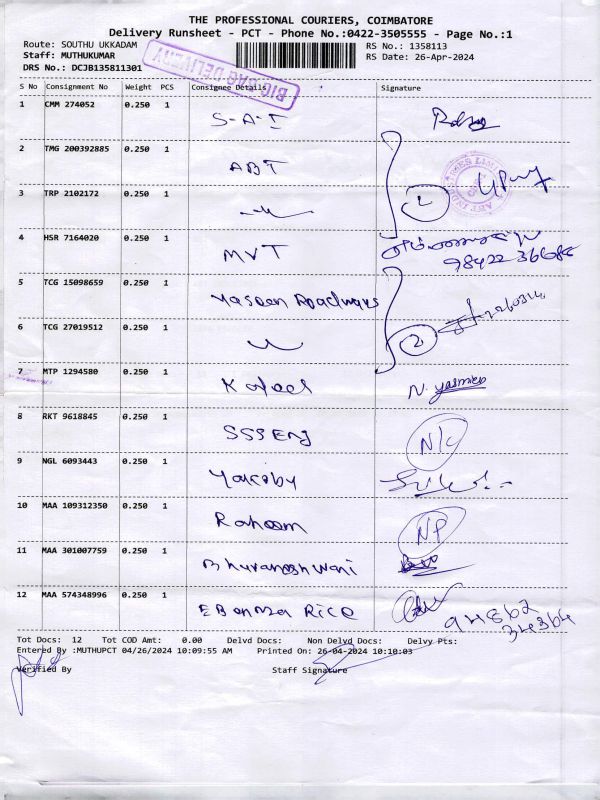 THE PROFESSIONAL COURIERS, COIMBATORE
Delivery Runsheet - PCT - Phone No.:0422-3505555 - Page No.:1
Route: SOUTHU UKKADAM RS No.: 1358113
Staff: MUTHUKUMAR RS Date: 26-Apr-2024
DRS No.: DCJB135811301
BIG BAG DELIVERY
S No Consignment No Weight PCS Consignee Details Signature
1 CMM 274052 0.250 1 S-A-I
2 TMG 200392885 0.250 1 ABT
3 TRP 2102172 0.250 1 2
4 HSR 7164020 0.250 1 MVT
5 TCG 15098659 0.250 1 Yaseen Roadways
6 TCG 27019512 0.250 1 2
7 MTP 1294580 0.250 1 N. Yasmeen
8 RKT 9618845 0.250 1 SSS ENJ N/C
9 NGL 6093443 0.250 1
10 MAA 109312350 0.250 1 Raheem NP
11 MAA 301007759 0.250 1 Bhuvaneshwari
12 MAA 574348996 0.250 1 Rice
Tot Docs: 12 Tot COD Amt: 0.00 Delvd Docs: Non Delvd Docs: Delvy Pts:
Entered By :MUTHUPCT 04/26/2024 10:09:55 AM Printed On: 26-04-2024 10:10:03
Verified By Staff Signature